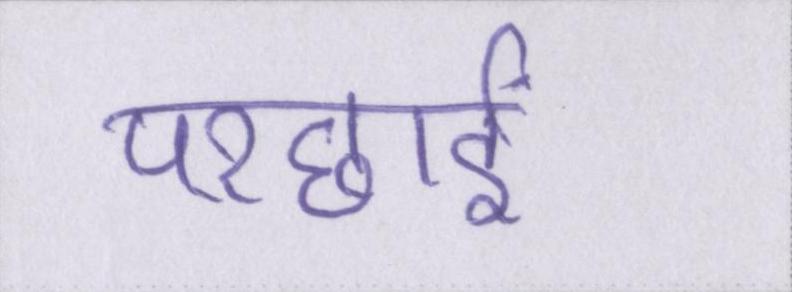 परछाईं